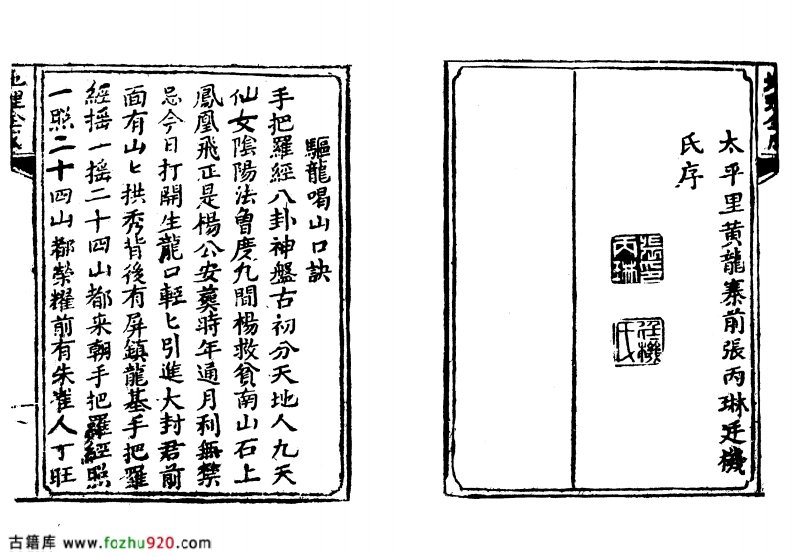 太平里黄龍寨前張丙琳廷機
氏序
張印
丙琳
廷機
氏
驅龍喝山口訣
手把羅經八卦神盤古初分天地人九天
仙女陰陽法魯度九間楊救貧南山石上
鳳凰飛正是楊公安葬時年通月利無禁
忌今日打開生龍口輕匕引進大封君前
面有山匕拱秀背後有屏鎮龍基手把羅
經摇一摇二十四山都来朝手把羅經照
一照二十四山都榮耀前有朱雀人丁旺
地理全
古籍库 www.fozhu920.com